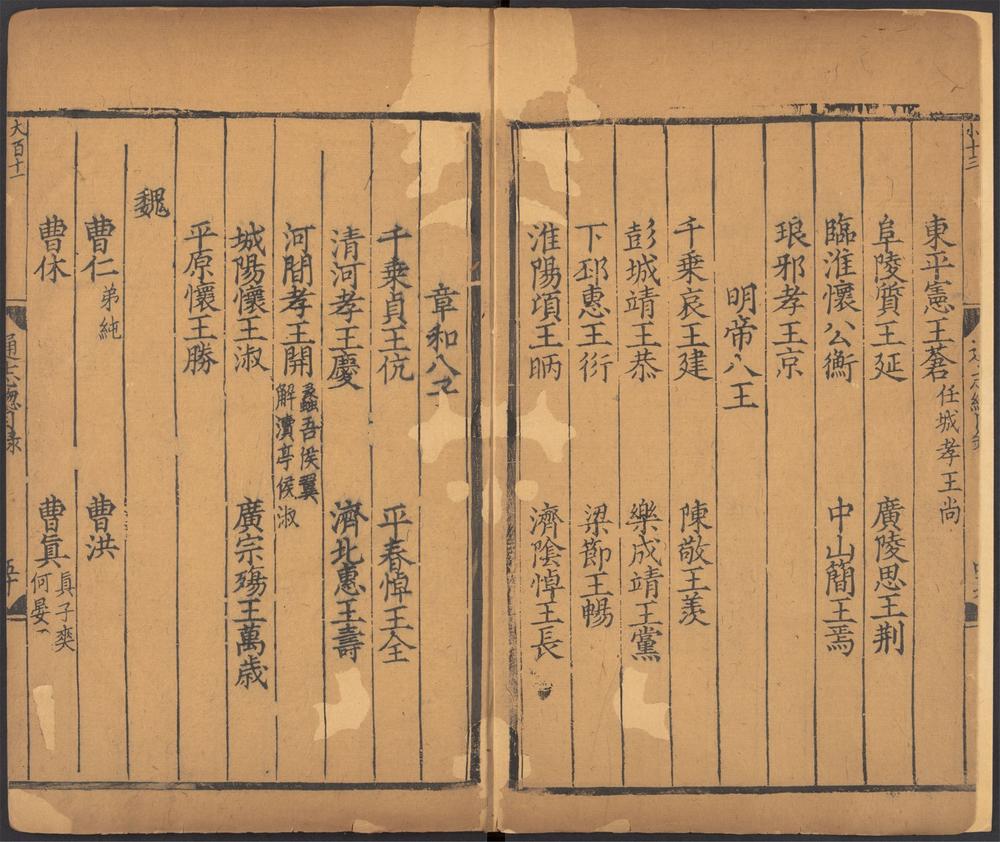 東平憲王蒼 任城孝王尚
阜陵質王延 廣陵思王荆
臨淮懷公衡 中山簡王焉
琅邪孝王京
明帝八王
千乗哀王建 陳敬王羡
彭城靖王恭 樂成靖王黨
下邳惠王衍 梁節王暢
淮陽頃王昞 濟陰悼王長
章和八王
千乗貞王伉 平春悼王全
清河孝王慶 濟北惠王壽
河間孝王開 蠡吾侯翼 解瀆亭侯淑
城陽懷王淑 廣宗殤王萬歲
平原懷王勝
魏
曹仁 弟純 曹洪
曹休 曹真 真子爽 何晏
大百十一
通志緫目錄